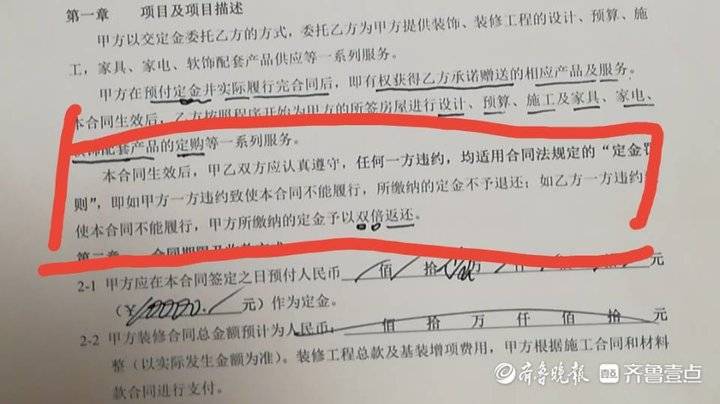 第一章　　项目及项目描述
甲方以交定金委托乙方的方式，委托乙方为甲方提供装饰、装修工程的设计、预算、施
工，家具、家电、软饰配套产品供应等一系列服务。
甲方在预付定金并实际履行完合同后，即有权获得乙方承诺赠送的相应产品及服务。
本合同生效后，乙方按照程序开始为甲方的所签房屋进行设计、预算、施工及家具、家电、
软饰配套产品的定购等一系列服务。
本合同生效后，甲乙双方应认真遵守，任何一方违约，均适用合同法规定的“定金罚
则”，即如甲方一方违约致使本合同不能履行，所缴纳的定金不予退还；如乙方一方违约
使本合同不能履行，甲方所缴纳的定金予以双倍返还。
第二章
2-1 甲方应在本合同签定之日预付人民币 佰 拾 万 仟 佰 拾 元
（¥10000. 元）作为定金。
2-2 甲方装修合同总金额预计为人民币： 佰 拾 万 仟 佰 拾 元
整（以实际发生金额为准）。装修工程总款及基装增项费用，甲方根据施工合同和材料
款合同进行支付。
齐鲁晚报 齐鲁壹点